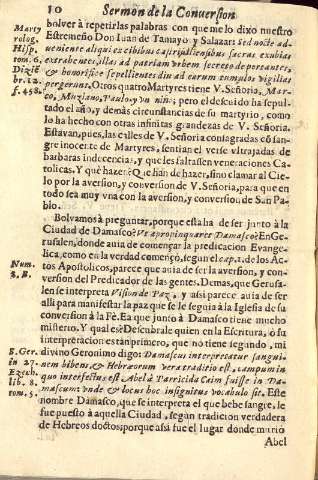 10 Sermon de la Conversion
bolver à repetirlas palabras con que me lo dixo nuestro
Estremeño Don Iuan de Tamayo, y Salazar: sed nocte ad-
Marty
rolog.
Hisp.
tom. 6.
Diziē
br. 12.
f. 458.
veniente aliqui ex cibitus sacras exubias
extrahentes, illas ad patriam urbem secreto deportantes,
& honorifice sepellientes diu ad earum tumulos vigilias
pergerunt. Otros quatro Martyres tiene V. Señoria, Mar-
co, Muzlano, Paulo, y vn niño; pero el descuido ha sepul-
tado el año, y demàs circunstancias de su martyrio, como
lo ha hecho con otras infinitas grandezas de V. Señoria.
Estavan, pues, las calles de V. Señoria consagradas cõ san-
gre inocente de Martyres, sentian el verse vltrajadas de
barbaras indecencias, y que les faltassen veneraciones Ca-
tolicas. Y què hazer? Què han de hazer, sino clamar al Cie-
lo por la aversion, y conversion de V. Señoria, para que en
todo sea muy vna con la aversion, y conversion de San Pa-
blo.
Bolvamos à preguntar, porque esta ha de ser junto à la
Ciudad de Damasco? Vt apropinquaret Damasco? En Ge-
rusalen, donde avia de començar la predicacion Evange-
lica, como en la verdad començò, segun el cap. 1. de los Ac-
Num.
3. B.
tos Apostolicos, parece que avia de ser la aversion, y con-
version del Predicador de las gentes. Demas, que Gerusa-
len se interpreta Vision de Paz, y assi parece avia de ser
alli para manifestar la paz que se le seguia à la Iglesia de su
conversion à la Fè. Ea que junto à Damasco tiene mucho
misterio. Y qual es? Descubrale quien en la Escritura, ò su
interpretacion es tan primero, que no tiene segundo, mi
S. Ger.
in 27.
Ezech.
lib. 8.
tom. 5.
divino Geronimo digo: Damascus interpretatur sangui-
nem bibens, & Hebræorum vera traditio est, campum in
quo interfectus est Abel à Parricida Caim fuisse in Da-
mascum: unde & locus hoc insignitus vocabulo sit. Este
nombre Damasco, que se interpreta el que bebe sangre, le
fue puesto à aquella Ciudad, segun tradicion verdadera
de Hebreos doctos; porque assi fue el lugar donde muriò
Abel